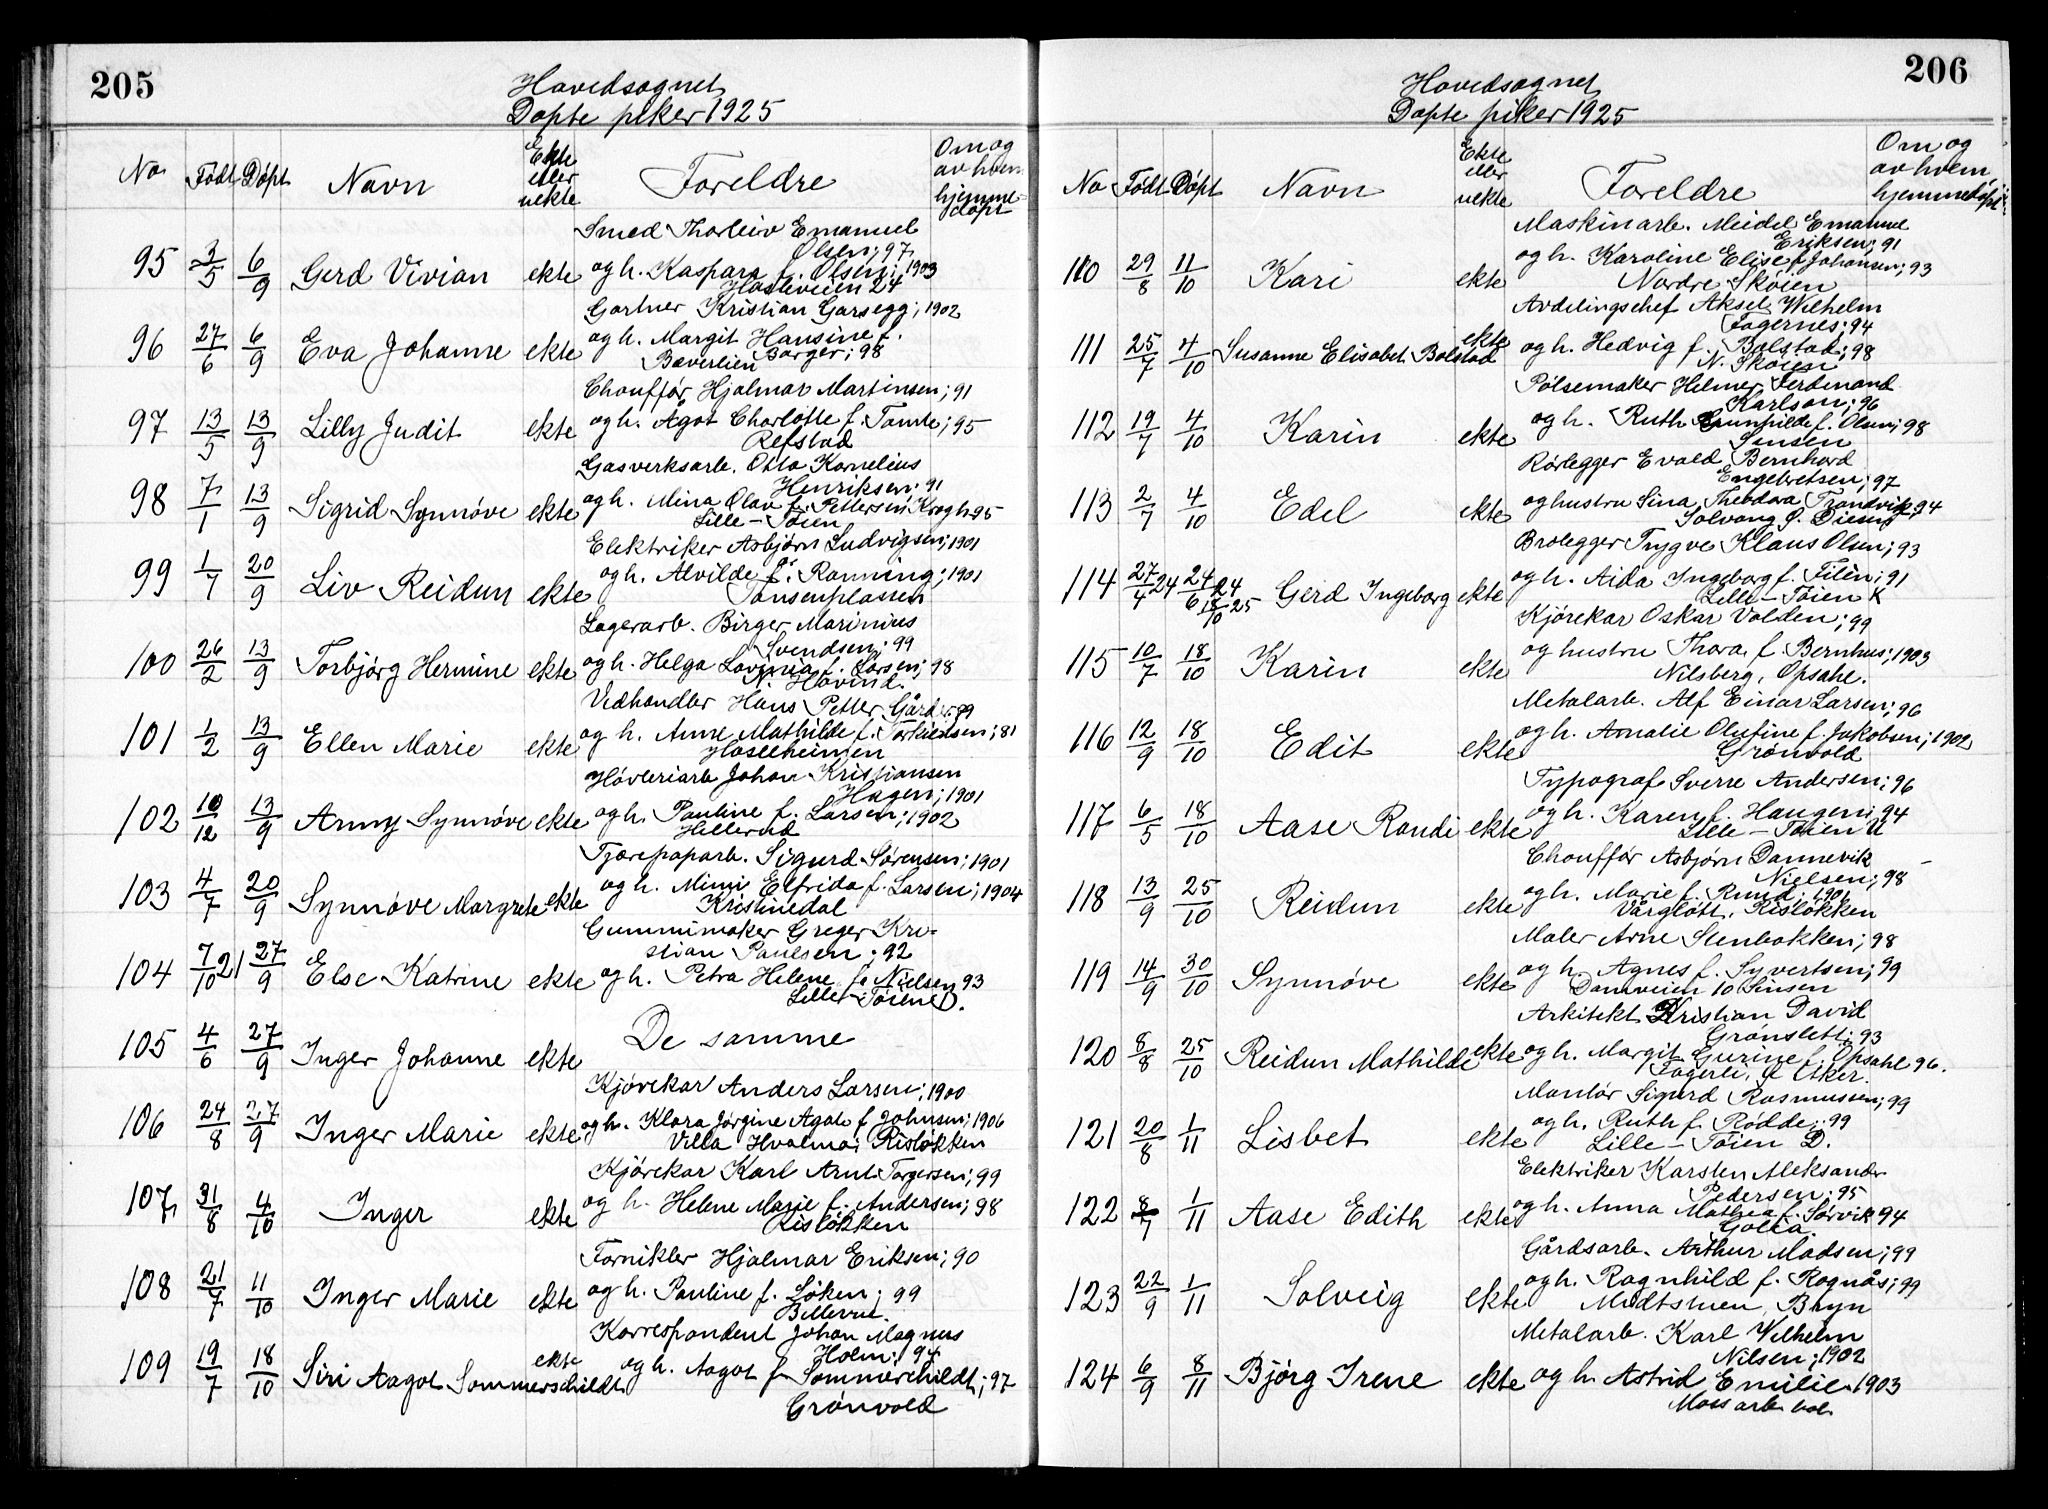 205
Hovedsognet
Døpte piker 1925
No Født Døpt Navn Ekte eller uekte Foreldre Om og av hvem hjemmedøpt
Smed Thorleiv Emanuel
Olsen; 97
95 3/5 6/9 Gerd Vivian ekte og h. Kaspara f. Olsen; 1903
Hasleveien 24
Gartner Kristian Garsegg; 1902
96 27/6 6/9 Eva Johanne ekte og h. Margit Hansine f.
Bæverlien Borger; 98
Chouffør Hjalmar Martinsen; 91
97 13/5 13/9 Lilly Judit ekte og h. Ågot Charlotte f. Tomte; 95
Refstad
Gasverksarb. Otto Kornelius
Henriksen; 91
98 7/1 13/9 Sigrid Synnøve ekte og h. Mina Olav f. Pettersen Krogh 95
Lille-Tøien
Elektriker Asbjørn Ludvigsen; 1901
99 1/7 20/9 Liv Reidun ekte og h. Alvilde f. Rønning; 1901
Tonsenplassen
Lagerarb. Birger Marinius
Svendsen; 99
100 26/2 13/9 Torbjørg Hermine ekte og h. Helga Lovinia f. Larsen; 98
N. Hovind.
Vedhandler Hans Petter Gårder; 99
101 1/2 13/9 Ellen Marie ekte og h. Anne Mathilde f. Torkildsen; 81
Hasleheimen
Høvleriarb Johan Kristiansen
Hagen; 1901
102 10/12 13/9 Anny Synnøve ekte og h. Pauline f. Larsen; 1902
Hillerud
Tjærepaparb. Sigurd Sørensen; 1901
103 4/7 20/9 Synnøve Margrete ekte og h. Mimi Elfrida f. Larsen; 1904
Kristinedal
Gummimaker Greger Kri-
stian Paulsen; 92
104 7/10 21 27/9 Else Katrine ekte og h. Petra Helene f. Nielsen 93
Lille Tøien D.
105 4/6 27/9 Inger Johanne ekte De samme
Kjørekar Anders Larsen; 1900
106 24/8 27/9 Inger Marie ekte og h. Klara Jørgine Agate f. Johnsen; 1906
Villa Hvalmoi Risløkken
Kjørekar Karl Arnt Torgersen; 99
107 31/8 4/10 Inger ekte og h. Helene Marie f. Andersen; 98
Risløkken
Fornikler Hjalmar Eriksen; 90
108 21/7 11/10 Inger Marie ekte og h. Pauline f. Løken; 99
Bellevue.
Korrespondent Johan Magnus
Holm; 94
109 19/7 18/10 Siri Aagot Sommerschildt ekte og h. Aagot f. Sommerschildt; 97
Grønvold
206
Hovedsognet
Døpte piker 1925
No Født Døpt Navn Ekte eller uekte Foreldre Om og av hvem hjemmedøpt
Maskinarb. Meidel Emanuel
Eriksen; 91
110 29/8 11/10 Kari ekte og h. Karoline Elise f. Johansen; 93
Nordre Skøien
Avdelingschef Aksel Wilhelm
Fagernes; 94
111 25/7 4/10 Susanne Elisabet Bolstad ekte og h. Hedvig f. Bolstad; 98
N. Skøien
Pølsemaker Helmer Ferdinand
Karlson; 96
112 19/7 4/10 Karin ekte og h. Ruth Gunhilde f. Olsen; 98
Sinsen
Rørlegger Evald Bernhard
Engebretsen; 97
113 2/7 4/10 Edel ekte og hustru Sina Theodora Trondvik; 94
Solvang Ø. Disengt
Brolegger Trygve Klaus Olsen; 93
114 27/4 24 24/6 24 18/10 25 Gerd Ingeborg ekte og h. Aida Ingeborg f. Filèn; 91
Lille-Tøien K
Kjørekar Oskar Volden; 99
115 10/7 18/10 Karin ekte og hustru Thora f. Bernhus; 1903
Nilsberg, Opsahl.
Metalarb. Alf Einar Larsen; 96
116 12/9 18/10 Edit ekte og h. Amalie Olufine f. Jakobsen; 1902
Grønvold
Typograf Sverre Andersen; 96
117 6/5 18/10 Aase Randi ekte og h. Karen f. Haugen; 94
Lille-Tøien U
Chouffør Asbjørn Dannevik
Nielsen; 98
118 13/9 25/10 Reidun ekte og h. Marie f. Rund; 1901
Vargløtt, Risløkken
Maler Arne Stenbakken; 98
119 14/9 30/10 Synnøve ekte og h. Agnes f. Syvertsen; 99
Damveien 10 Sinsen
Arkitekt Kristian David
Grønslett; 93
120 8/8 25/10 Reidun Mathilde ekte og h. Margit Gurine f. Opsahl 96.
Fagerli, Ø Aker.
Montør Sigurd Rasmussen; 99
121 20/8 1/11 Lisbet ekte og h. Ruth f. Rødde; 99
Lille-Tøien D.
Elektriker Karsten Aleksander
Pedersen; 95
122 8/7 1/11 Aase Edith ekte og h. Anna Mathea f. Sørvik 94
Golia
Gårdsarb. Arthur Madsen; 99
123 22/9 1/11 Solveig ekte og h. Ragnhild f. Rognås; 99
Midtsmen, Bryn
Metalarb. Karl Wilhelm
Nilsen; 1902
124 6/9 8/11 Bjørg Irene ekte og h. Astrid Emilie 1903